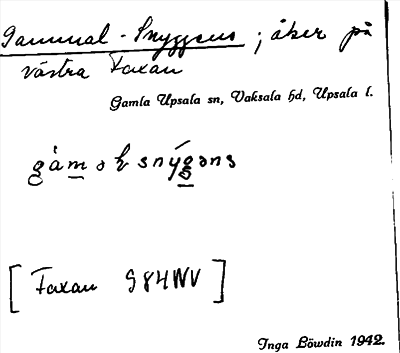 Gammal-Snyggens; åker på
västra Faxan
Gamla Upsala sn, Vaksala hd, Upsala l.
[Faxan 984NV]
Inga Löwdin 1942.